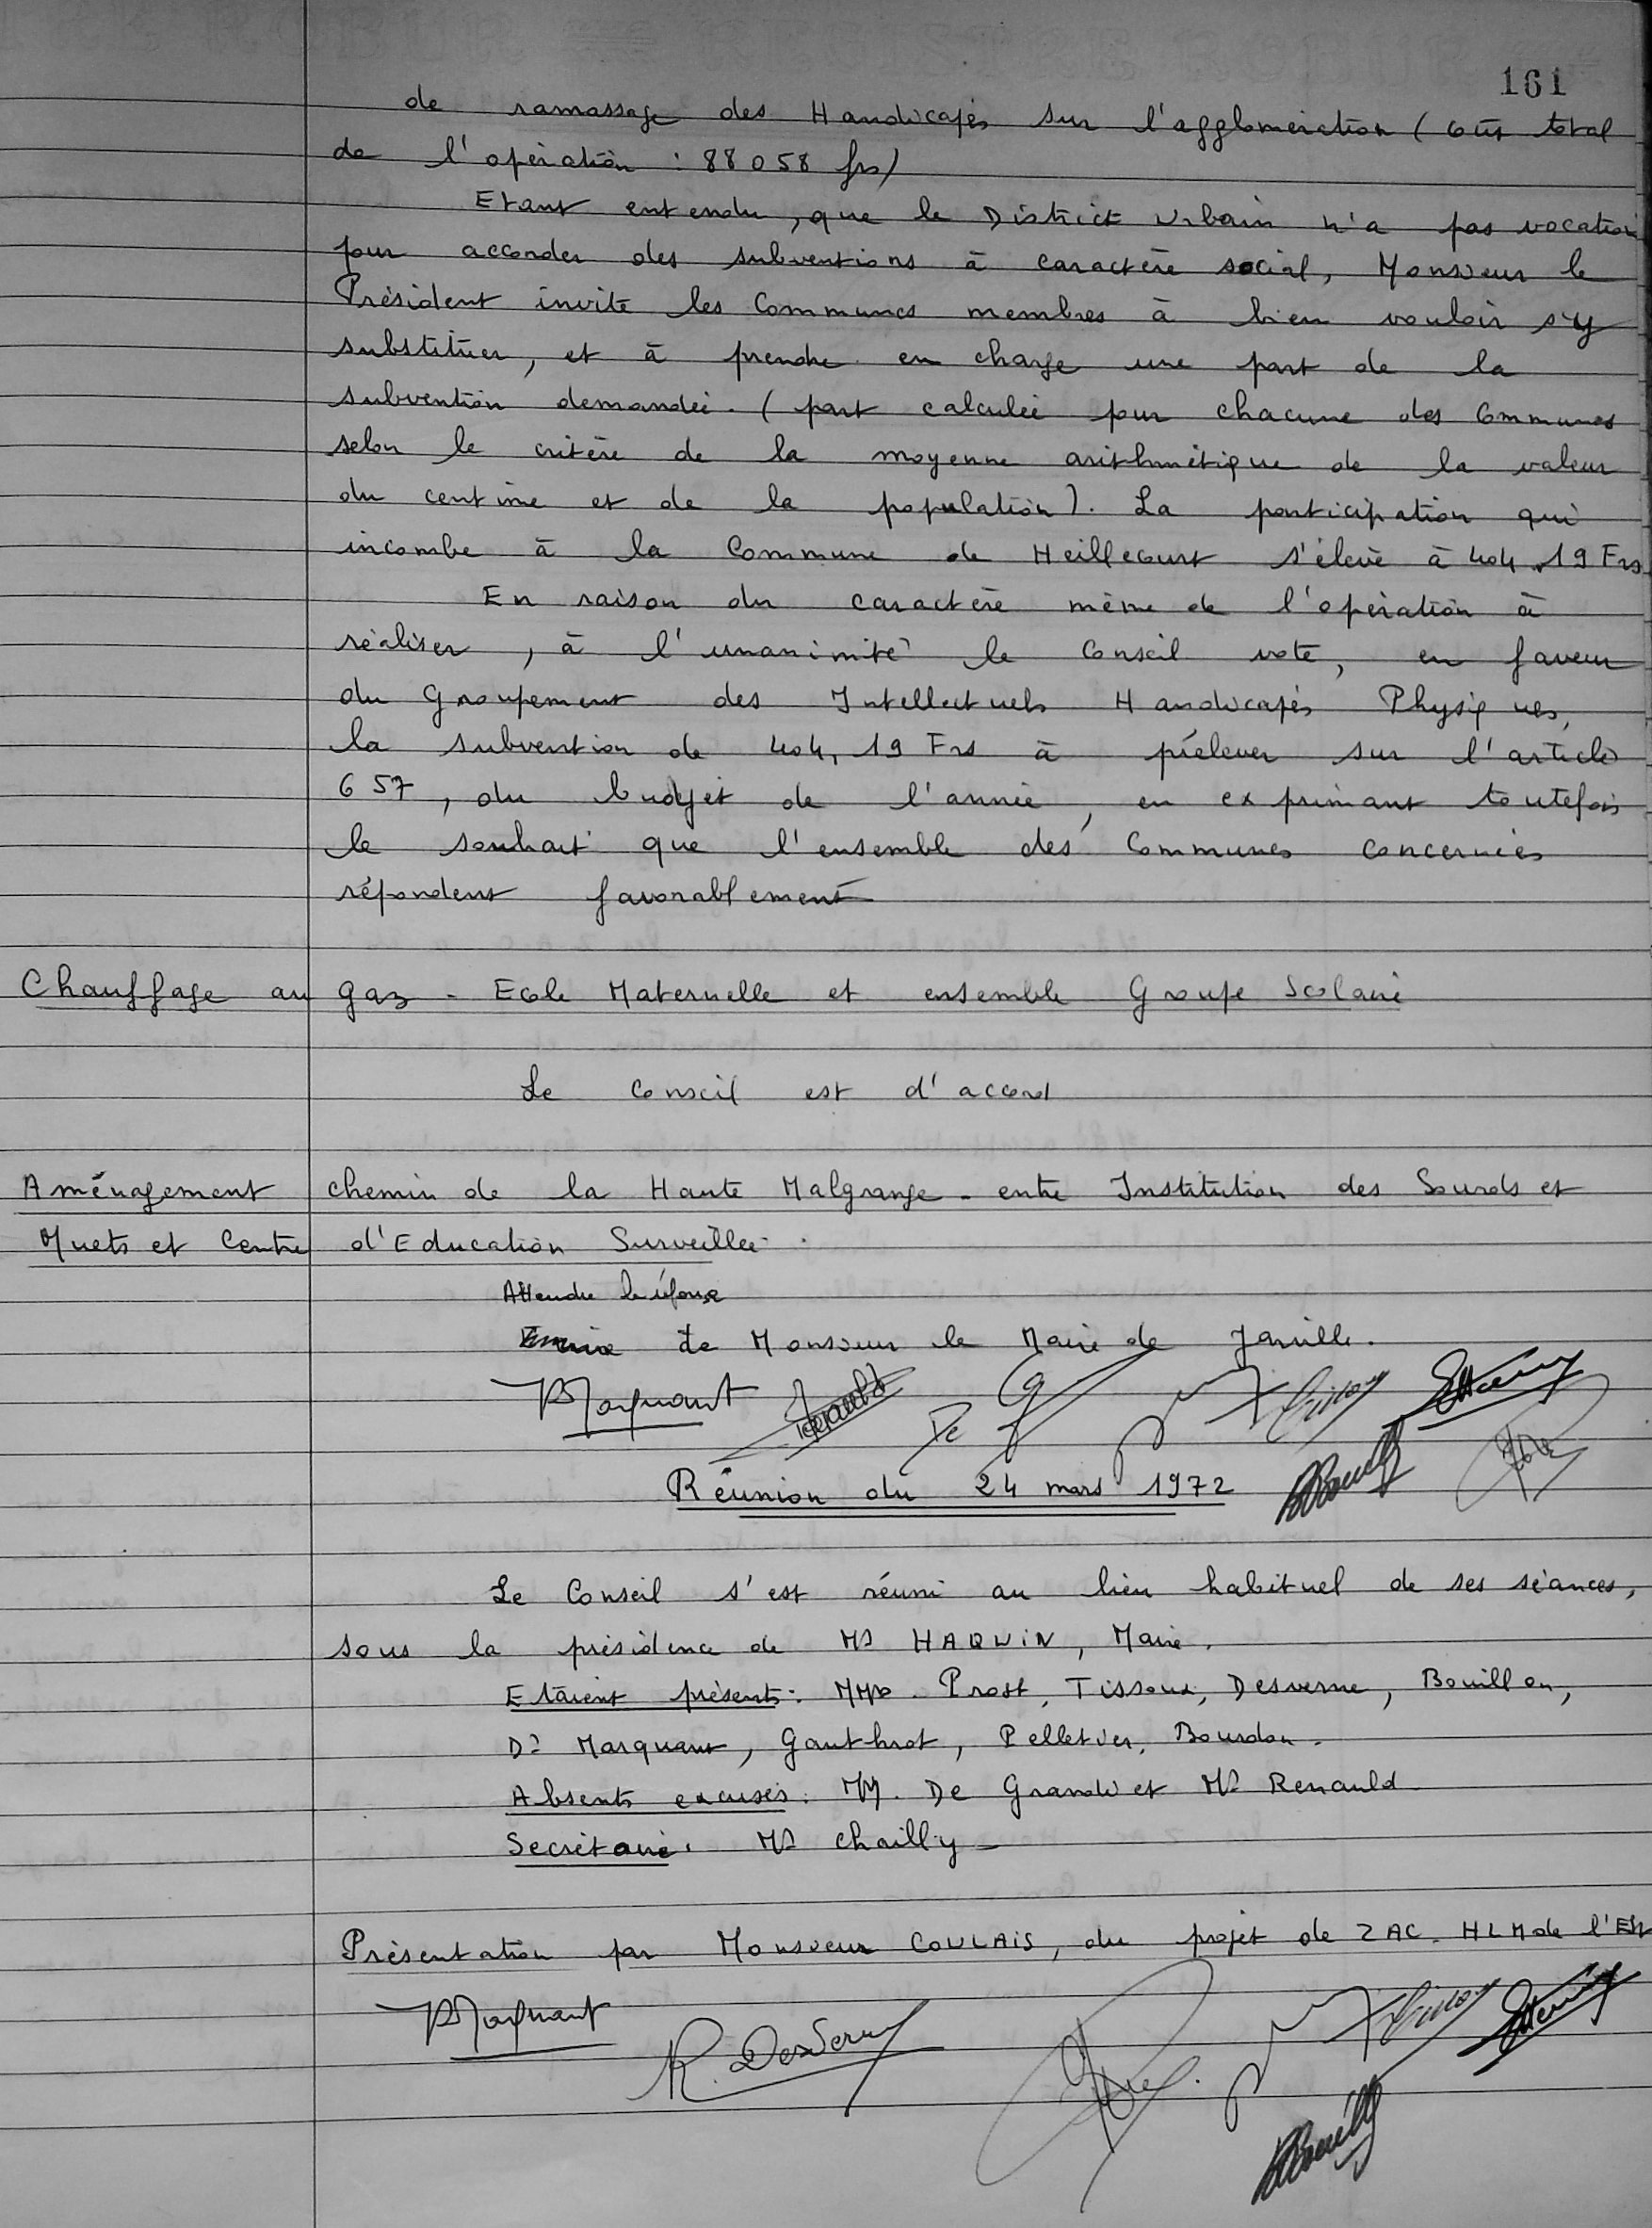 161
de ramassage des Handicapés sur l'agglomération (coût total
de l'opération : 88 058 frs)
Etant entendu, que le District Urbain n'a pas vocation
pour accorder des subventions à caractère social, Monsieur le
Président invite les Communes membres à bien vouloir s'y
substituer, et à prendre en charge une part de la
subvention demandée. (part calculée pour chacune des Communes
selon le critère de la moyenne arithmétique de la valeur
du centime et de la population). La participation qui
incombe à la Commune de Heillecourt s'élève à 404,19 Frs.
En raison du caractère même de l'opération à
réaliser, à l'unanimité le Conseil vote, en faveur
du Groupement des Intellectuels Handicapés Physiques,
la subvention de 404,19 Frs à prélever sur l'article
657, du budget de l'année, en exprimant toutefois
le souhait que l'ensemble des Communes concernées
répondent favorablement
Chauffage au gaz - Ecole Maternelle et ensemble Groupe Scolaire
Le Conseil est d'accord
Aménagement chemin de la Haute Malgrange - entre Institution des Sourds et
Muets et Centre d'Education Surveillée.
Attendre la réponse
de Monsieur le Maire de Jarville.
Marquant
Réunion du 24 mars 1972
Le Conseil s'est réuni au lieu habituel de ses séances,
sous la présidence de Mr HAQUIN, Maire.
Etaient présents: MMrs. Prost, Tissoux, Desverne, Bouillon,
Dr Marquant, Gauthrot, Pelletier, Bourdon.
Absents excusés: MM. De Grandi et Mr Renauld
Secrétaire: Mr Chailly -
Présentation par Monsieur COULAIS, du projet de ZAC. HLM de l'Est
Marquant
R. Desverne